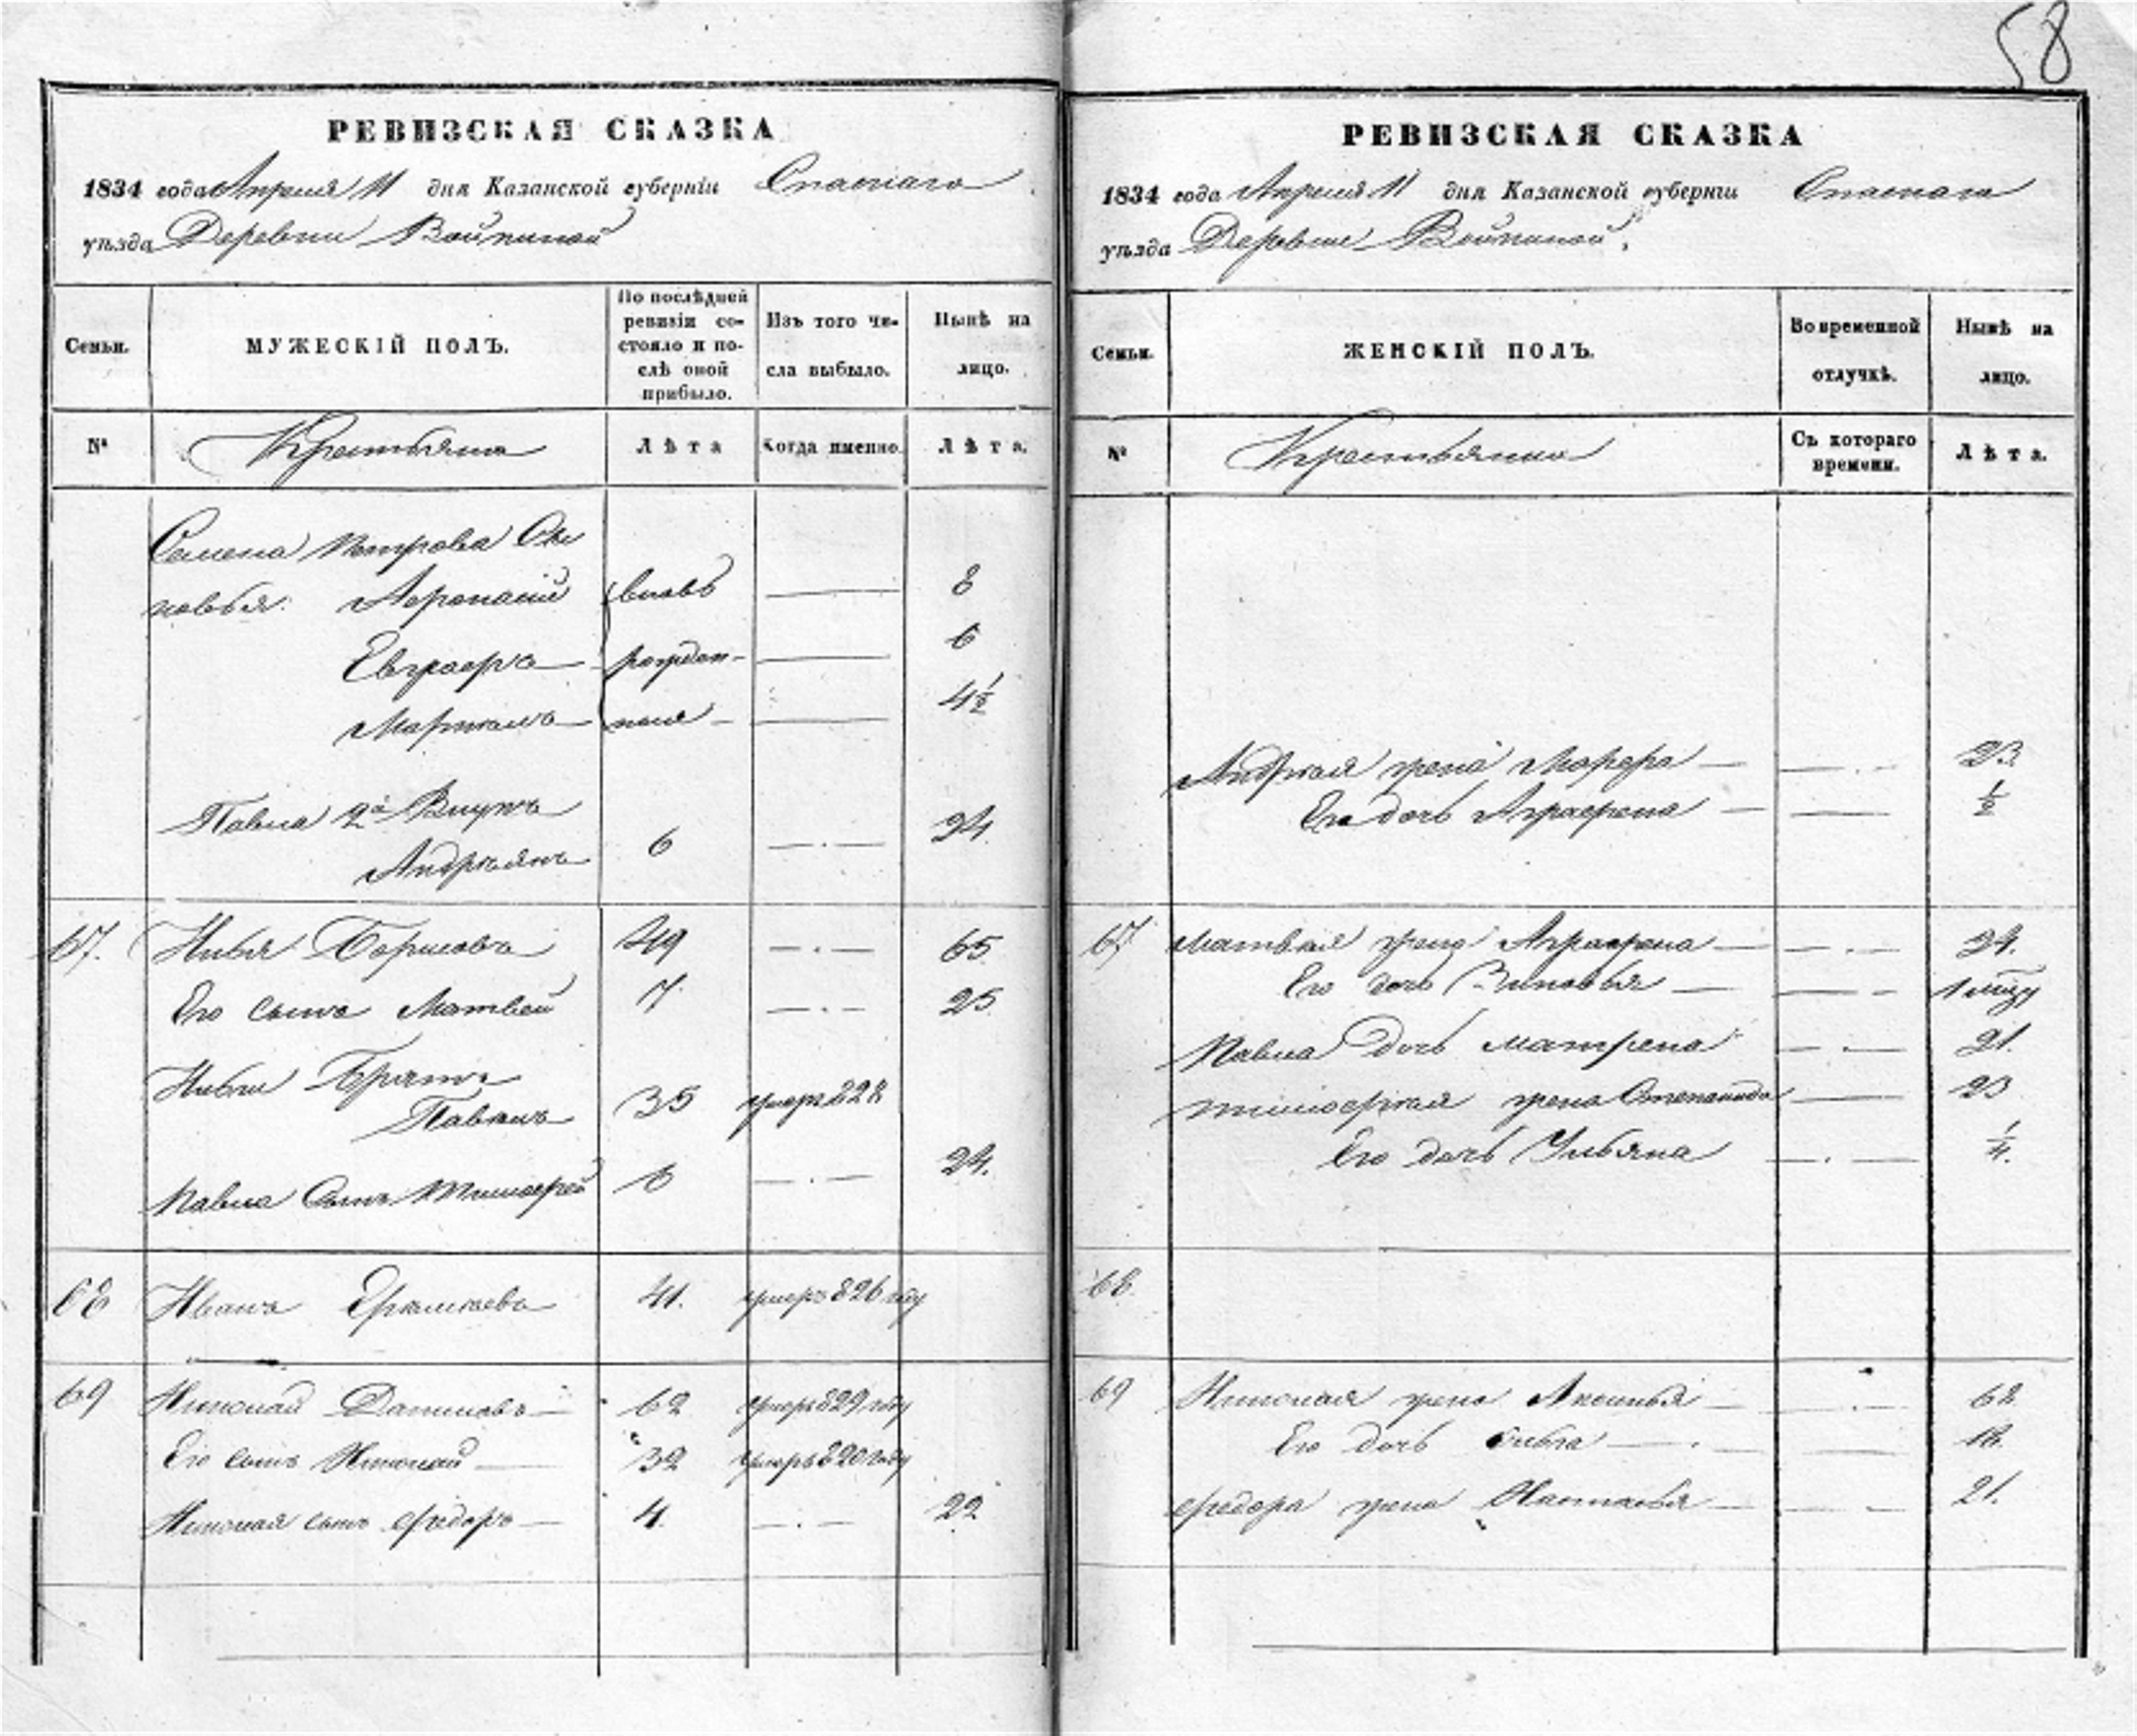 58
РЕВИЗСКАЯ СКАЗКА
1834 года Апреля 11 дня Казанской губернiи Спаскаго
уѣзда Деревни Войкиной
Семьи.
МУЖЕСКIЙ ПОЛЪ.
По послѣдней
ревизiи со-
стояло и по-
слѣ оной
прибыло.
Изъ того чи-
сла выбыло.
Нынѣ на
лицо.
№
Крестьяне
Лѣта
Когда именно.
Лѣта.
Семена Петрова Сы
новья: Афонасiй вновь 8
Евграфъ рожден- 6
Маркелъ ные 4½
Павла 2й Внукъ
Андреянъ 6 24.
67. Борисовъ 49 65
Его сынъ Матвей 7 25
Братъ
Павелъ 35 умеръ 828
Павла Сынъ Тимофей 6 24.
68 Иванъ Ермолаевъ 41. умеръ 826 году
69 Николай Даниловъ 62 умеръ 829 году
Его сынъ Николай 32 умеръ 820 году
Николая сынъ Федоръ 4. 22
РЕВИЗСКАЯ СКАЗКА
1834 года Апреля 11 дня Казанской губернiи Спаскаго
уѣзда Деревни Войкиной
Семьи.
ЖЕНСКIЙ ПОЛЪ.
Во временной
отлучкѣ.
Нынѣ на
лицо.
№
Крестьянки
Съ котораго
времени.
Лѣта.
жена Марфа 23
Его дочь Аграфена ½
67 Матвея жена Аграфена 24.
Его дочь Зиновья
Павла дочь Матрена 21.
Тимофея жена Степанида 23
Его дочь Ульяна ¼.
68
69 Николая жена Аксинья 62
Его дочь
Федора жена Настасья 21.